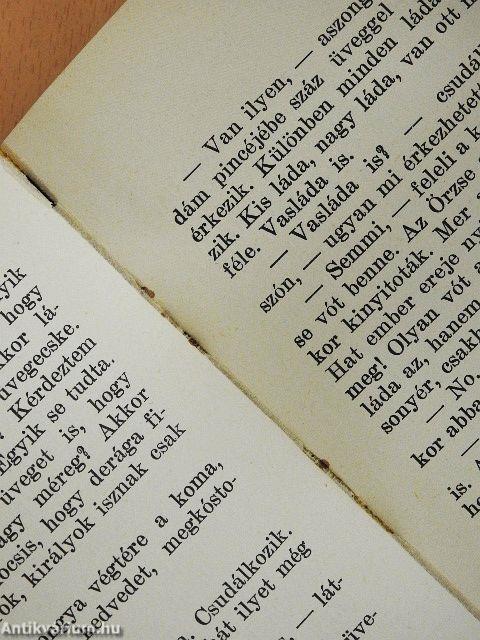 yik
hogy
kor lá-
üvegecske.
Kérdeztem
Egyik se tudta.
üveget is, hogy
agy méreg? Akkor
ocsis, hogy derága fi-
ok, királyok isznak csak
onya végtére a koma,
nedvedet, megkósto-
Csudálkozik.
hát ilyet még
— lát-
üve-
— Van ilyen, — aszong
dám pincéjébe száz üveggel
érkezik. Különben minden láda
zik. Kis láda, nagy láda, van ott m
féle. Vasláda is.
— Vasláda is? — csudálk
szón, — ugyan mi érkezhetett
— Semmi, — feleli a k
se vót benne. Az Örzse
kor kinyitoták. Mer
Hat ember ereje ny
meg! Olyan vót a
láda az, hanem
sonyér, csakh
— No.
kor abba
is. A
ho
Antikvárium.hu